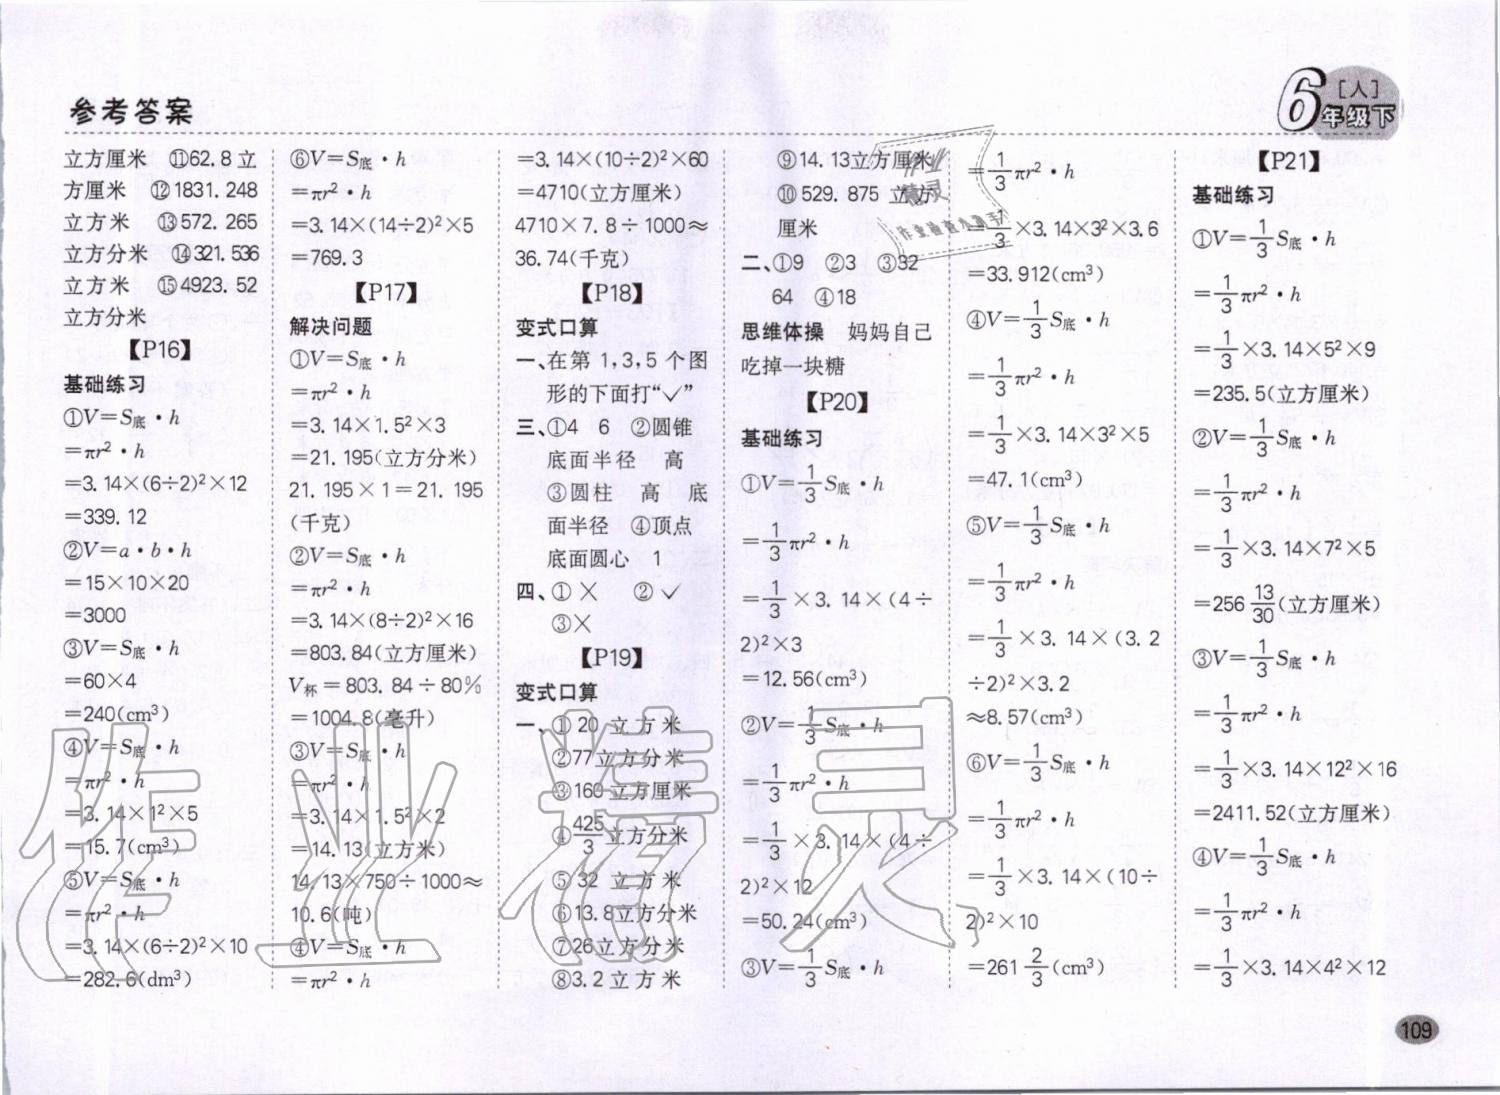 参考答案
6[人]
年级下
立方厘米 ⑪62.8立
方厘米 ⑫1831.248
立方米 ⑬572.265
立方分米 ⑭321.536
立方米 ⑮4923.52
立方分米
【P16】
基础练习
①V=S底·h
=πr²·h
=3.14×(6÷2)²×12
=339.12
②V=a·b·h
=15×10×20
=3000
③V=S底·h
=60×4
=240(cm³)
④V=S底·h
=πr²·h
=3.14×1²×5
=15.7(cm³)
⑤V=S底·h
=πr²·h
=3.14×(6÷2)²×10
=282.6(dm³)
⑥V=S底·h
=πr²·h
=3.14×(14÷2)²×5
=769.3
【P17】
解决问题
①V=S底·h
=πr²·h
=3.14×1.5²×3
=21.195(立方分米)
21.195×1=21.195
(千克)
②V=S底·h
=πr²·h
=3.14×(8÷2)²×16
=803.84(立方厘米)
V杯=803.84÷80%
=1004.8(毫升)
③V=S底·h
=πr²·h
=3.14×1.5²×2
=14.13(立方米)
14.13×750÷1000≈
10.6(吨)
④V=S底·h
=πr²·h
=3.14×(10÷2)²×60
=4710(立方厘米)
4710×7.8÷1000≈
36.74(千克)
【P18】
变式口算
一、在第1,3,5个图
形的下面打“✓”
三、①4 6 ②圆锥
底面半径 高
③圆柱 高 底
面半径 ④顶点
底面圆心 1
四、①× ②✓
③×
【P19】
变式口算
一、①20立方米
②77立方分米
③160立方厘米
④425/3立方分米
⑤32立方米
⑥13.8立方分米
⑦26立方分米
⑧3.2立方米
⑨14.13立方厘米
⑩529.875立方
厘米
二、①9 ②3 ③32
64 ④18
思维体操 妈妈自己
吃掉一块糖
【P20】
基础练习
①V=1/3S底·h
=1/3πr²·h
=1/3×3.14×(4÷
2)²×3
=12.56(cm³)
②V=1/3S底·h
=1/3πr²·h
=1/3×3.14×(4÷
2)²×12
=50.24(cm³)
③V=1/3S底·h
=1/3πr²·h
=1/3×3.14×3²×3.6
=33.912(cm³)
④V=1/3S底·h
=1/3πr²·h
=1/3×3.14×3²×5
=47.1(cm³)
⑤V=1/3S底·h
=1/3πr²·h
=1/3×3.14×(3.2
÷2)²×3.2
≈8.57(cm³)
⑥V=1/3S底·h
=1/3πr²·h
=1/3×3.14×(10÷
2)²×10
=261 2/3(cm³)
【P21】
基础练习
①V=1/3S底·h
=1/3πr²·h
=1/3×3.14×5²×9
=235.5(立方厘米)
②V=1/3S底·h
=1/3πr²·h
=1/3×3.14×7²×5
=256 13/30(立方厘米)
③V=1/3S底·h
=1/3πr²·h
=1/3×3.14×12²×16
=2411.52(立方厘米)
④V=1/3S底·h
=1/3πr²·h
=1/3×3.14×4²×12
作业精灵
作业
精灵
109